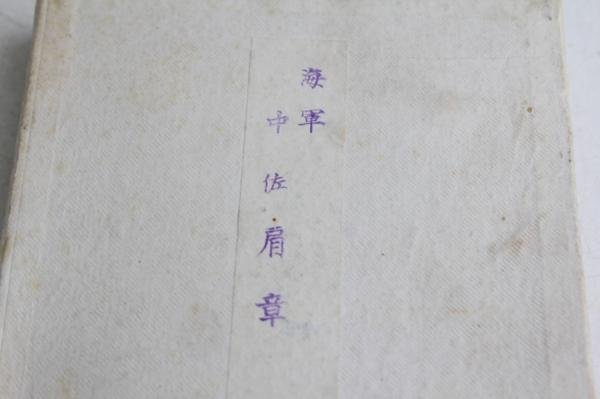 海軍
中佐肩章